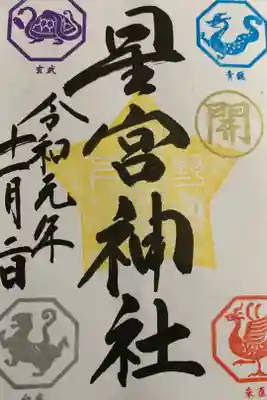 玄武
青龍
開
星宮神社
令和元年
十一月二日
朱雀